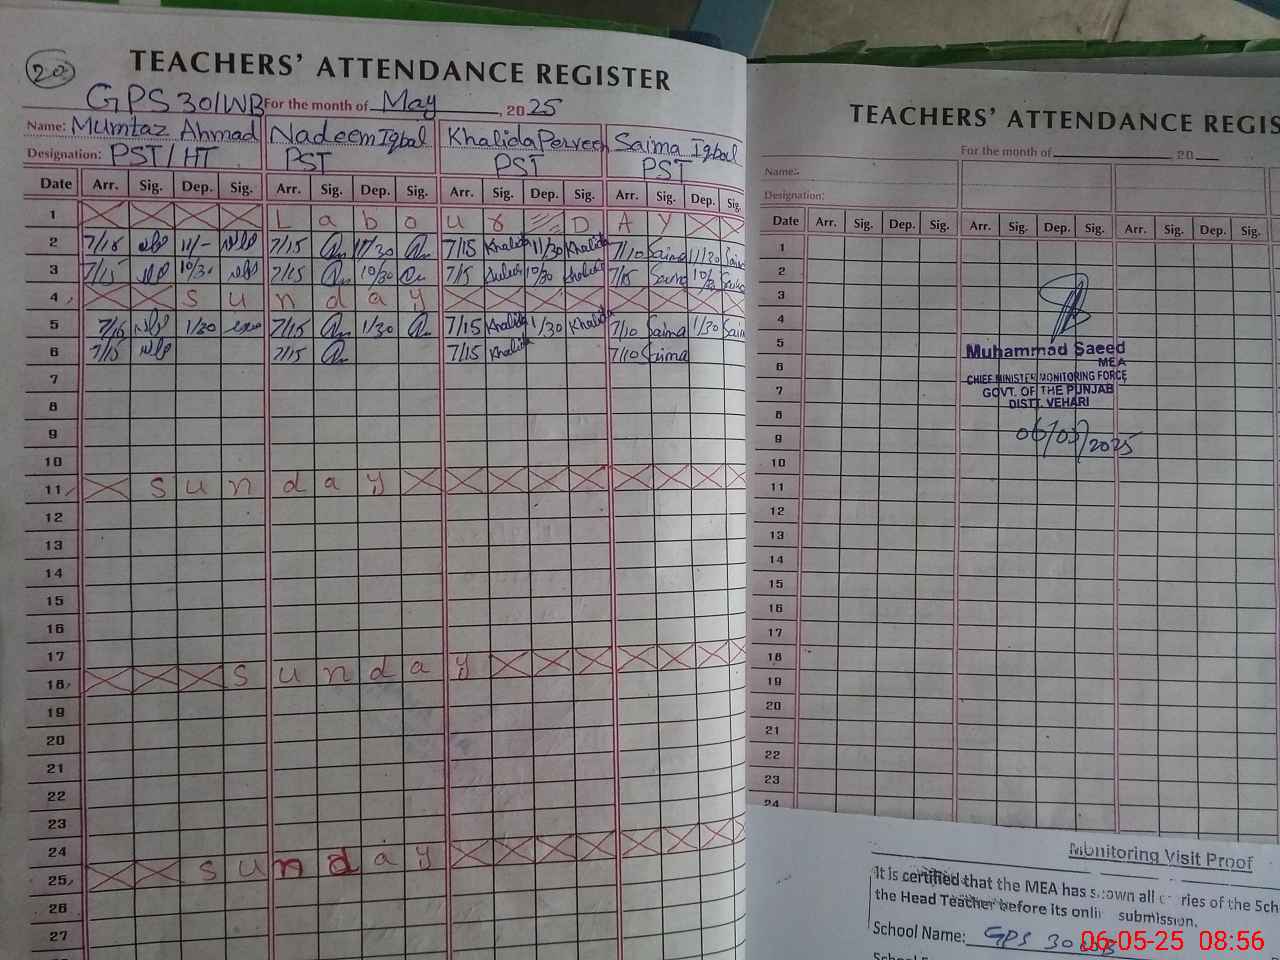 20
TEACHERS' ATTENDANCE REGISTER
GPS 301/WB For the month of May, 2025
Name: Mumtaz Ahmad Nadeem Iqbal Khalida Perveen Saima Iqbal
Designation: PST/HT PST PST PST
Date Arr. Sig. Dep. Sig. Arr. Sig. Dep. Sig. Arr. Sig. Dep. Sig. Arr. Sig. Dep. Sig.
1 L a b o u r D A Y
2 7/15 11/- 7/15 11/30 7/15 Khalida 11/30 Khalida 7/10 Saima 11/30 Saima
3 7/15 10/30 7/15 10/30 7/15 10/30 Khalida 7/15 Saima 10/30
4 S u n d a y
5 7/15 1/30 7/15 1/30 7/15 Khalida 1/30 Khalida 7/10 Saima 1/30 Saim
6 7/15 7/15 7/15 Khalida 7/10 Saima
7
8
9
10
11 S u n d a y
12
13
14
15
16
17
18 S u n d a y
19
20
21
22
23
24
25 S u n d a y
26
27
TEACHERS' ATTENDANCE REGIS
For the month of , 20
Name:-
Designation:
Date Arr. Sig. Dep. Sig. Arr. Sig. Dep. Sig. Arr. Sig. Dep. Sig.
1
2
3
4
5
6
7
8
9
10
11
12
13
14
15
16
17
18
19
20
21
22
23
24
Muhammad Saeed
MEA
CHIEF MINISTER MONITORING FORCE
GOVT. OF THE PUNJAB
DISTT. VEHARI
06/05/2025
Monitoring Visit Proof
It is certified that the MEA has shown all entries of the Sch
the Head Teacher before its online submission.
School Name: GPS 30
06-05-25 08:56